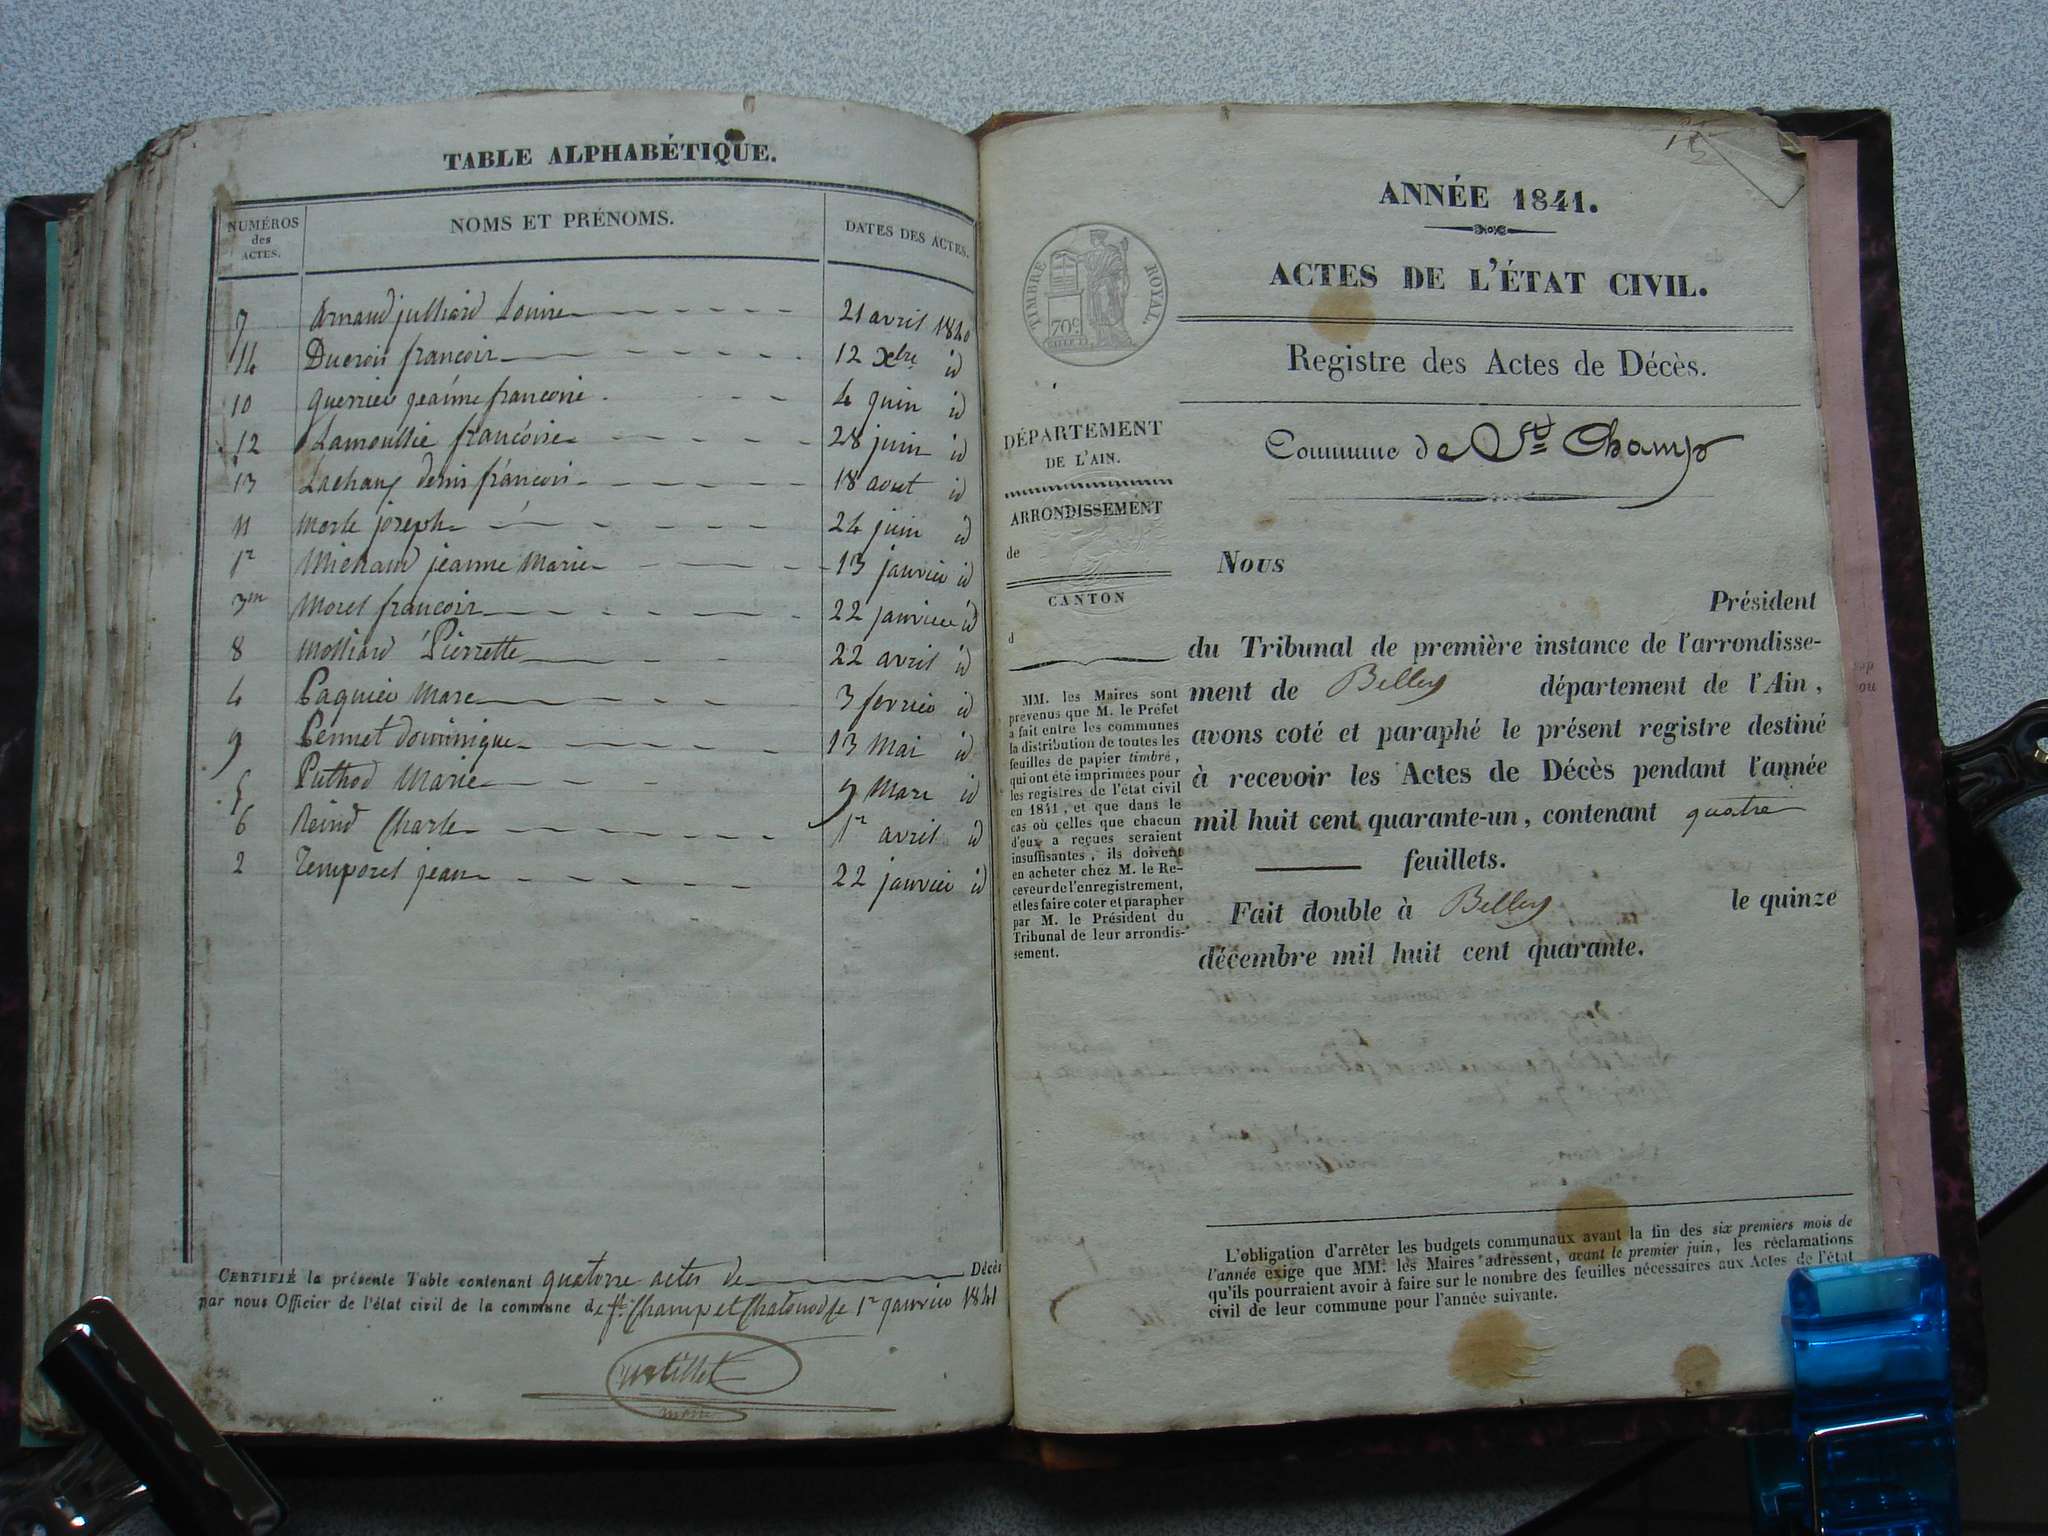 TABLE ALPHABÉTIQUE.
NUMÉROS des ACTES. NOMS ET PRÉNOMS. DATES DES ACTES.
7 Arnaud julliard Louise 21 avril 1840
14 Ducrois francois 12 Xbre id
10 Guerrier jeanne francoise 4 juin id
12 Lamoullie francoise 28 juin id
13 Lachaux denis francois 18 aout id
11 Morte joseph 24 juin id
1er Michaud jeanne Marie 13 janvier id
3me Morel francois 22 janvier id
8 Molliard Pierrette 22 avril id
4 Paquier Marc 3 fevrier id
9 Pennet dominique 13 Mai id
5 Puthod Marie 9 Mars id
6 Reind Charle 1er avril id
2 Temporel jean 22 janvier id
CERTIFIÉ la présente Table contenant quatorse actes de Décès
par nous Officier de l'état civil de la commune de St Champ et Chatonod le 1er janvier 1841
maire
ANNÉE 1841.
ACTES DE L'ÉTAT CIVIL.
TIMBRE ROYAL.
70c
Registre des Actes de Décès.
Commune de St Champ
DÉPARTEMENT
DE L'AIN.
ARRONDISSEMENT
de
CANTON
d
MM. les Maires sont
prévenus que M. le Préfet
a fait entre les communes
la distribution de toutes les
feuilles de papier timbré,
qui ont été imprimées pour
les registres de l'état civil
en 1841, et que dans le
cas où celles que chacun
d'eux a reçues seraient
insuffisantes, ils doivent
en acheter chez M. le Re-
ceveur de l'enregistrement,
et les faire coter et parapher
par M. le Président du
Tribunal de leur arrondis-
sement.
Nous
Président
du Tribunal de première instance de l'arrondisse-
ment de Belley département de l'Ain,
avons coté et paraphé le présent registre destiné
à recevoir les Actes de Décès pendant l'année
mil huit cent quarante-un, contenant quatre
feuillets.
Fait double à Belley le quinze
décembre mil huit cent quarante.
L'obligation d'arrêter les budgets communaux avant la fin des six premiers mois de
l'année exige que MM. les Maires adressent, avant le premier juin, les réclamations
qu'ils pourraient avoir à faire sur le nombre des feuilles nécessaires aux Actes de l'état
civil de leur commune pour l'année suivante.